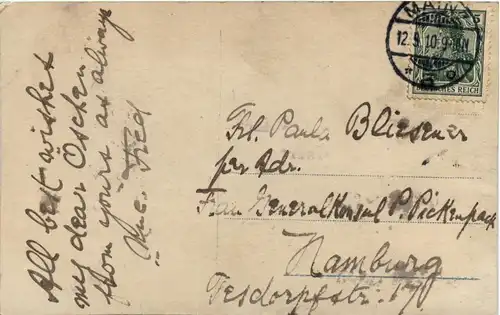 All best wishes
my dear Öschen
from yours as always
Fred
MAINZ
12.9.10.
5
DEUTSCHES REICH
Frl. Paula Bliesener
per Adr.
Frau Generalkonsul P. Pickenpack
Hamburg
Tesdorpfstr. 17